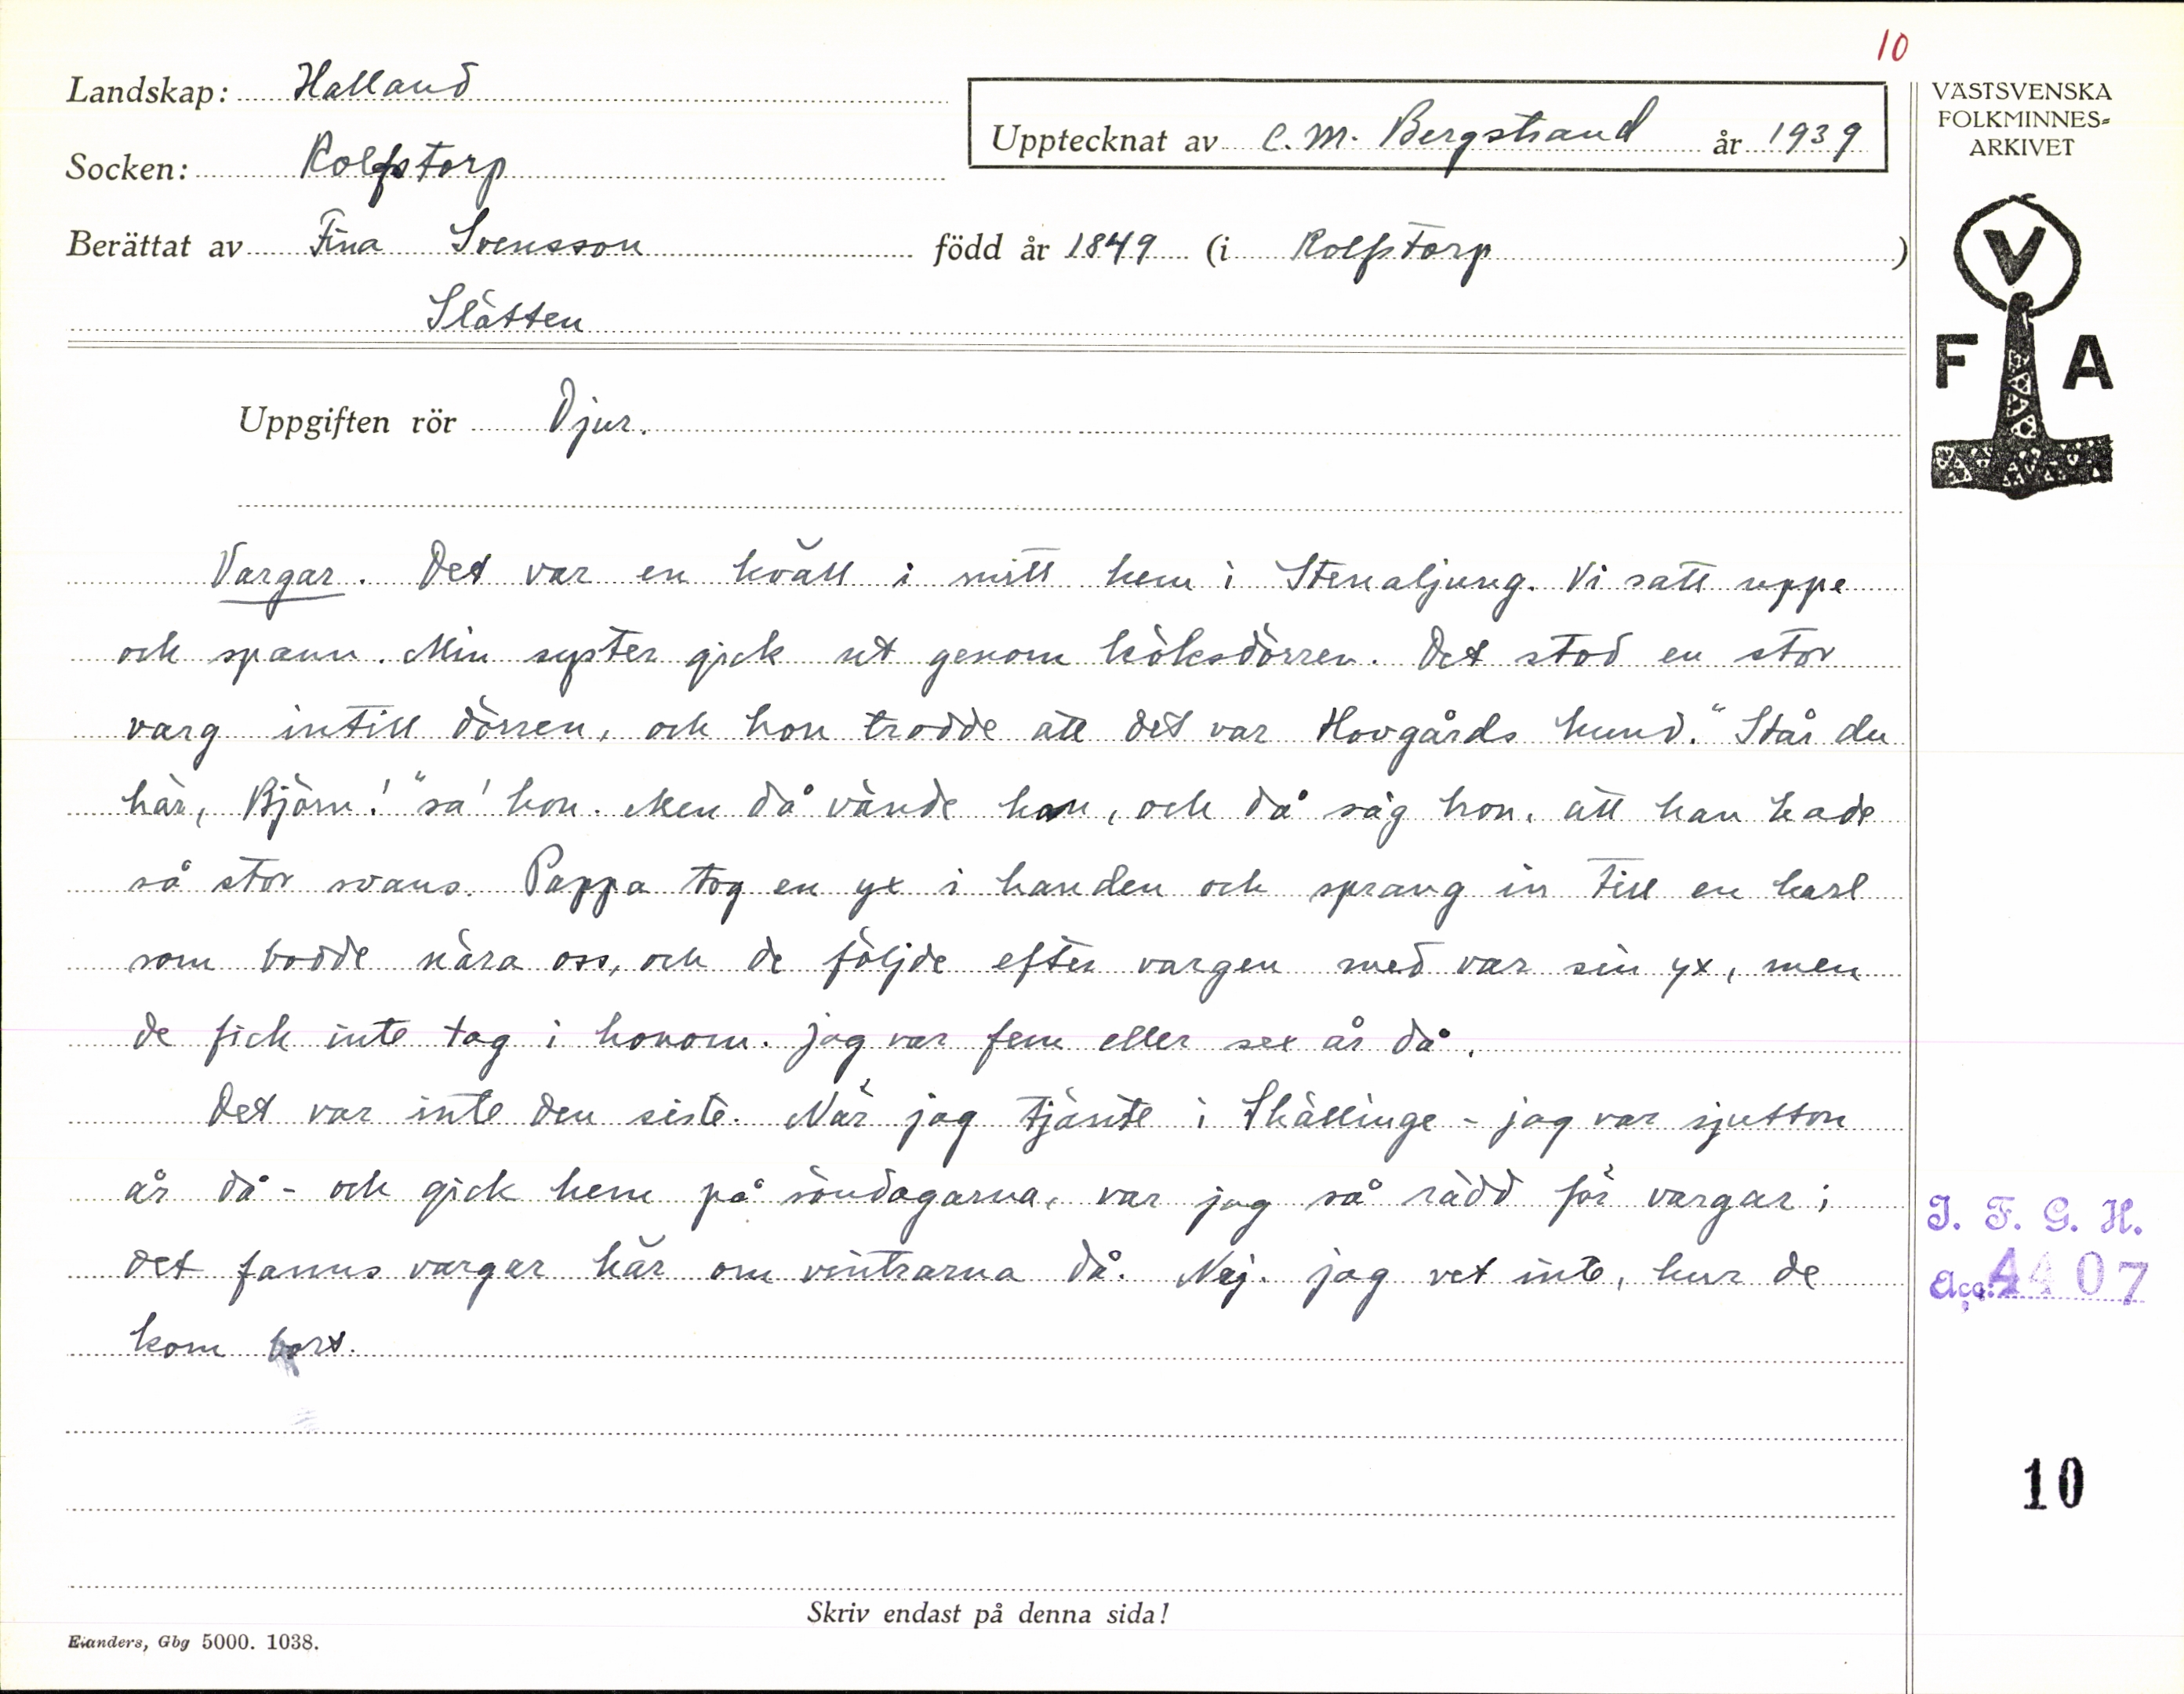 10
Landskap: Halland
VÄSTSVENSKA
FOLKMINNES=
ARKIVET
Upptecknat av C. M. Bergstrand år 1939
Socken: Rolfstorp
Berättat av Fina Svensson född år 1849 (i Rolfstorp)
Slätten
V
F A
Uppgiften rör Djur.
Vargar. Det var en kväll i mitt hem i Stenaljung. Vi satt uppe
och spann. Min syster gick ut genom köksdörren. Det stod en stor
varg intill dörren, och hon trodde att det var Hovgårds hund. "Står du
här, Björn!" sa' hon. Men då vände han, och då såg hon, att han hade
så stor svans. Pappa tog en yx i handen och sprang in till en karl
som bodde nära oss, och de följde efter vargen med var sin yx, men
de fick inte tag i honom. Jag var fem eller sex år då.
Det var inte den siste. När jag tjänte i Skällinge - jag var sjutton
år då - och gick hem på söndagarna, var jag så rädd för vargar;
det fanns vargar här om vintrarna då. Nej. jag vet inte, hur de
kom bort.
I. F. G. H.
Acc. 4407
10
Skriv endast på denna sida!
Elanders, Gbg 5000. 1038.